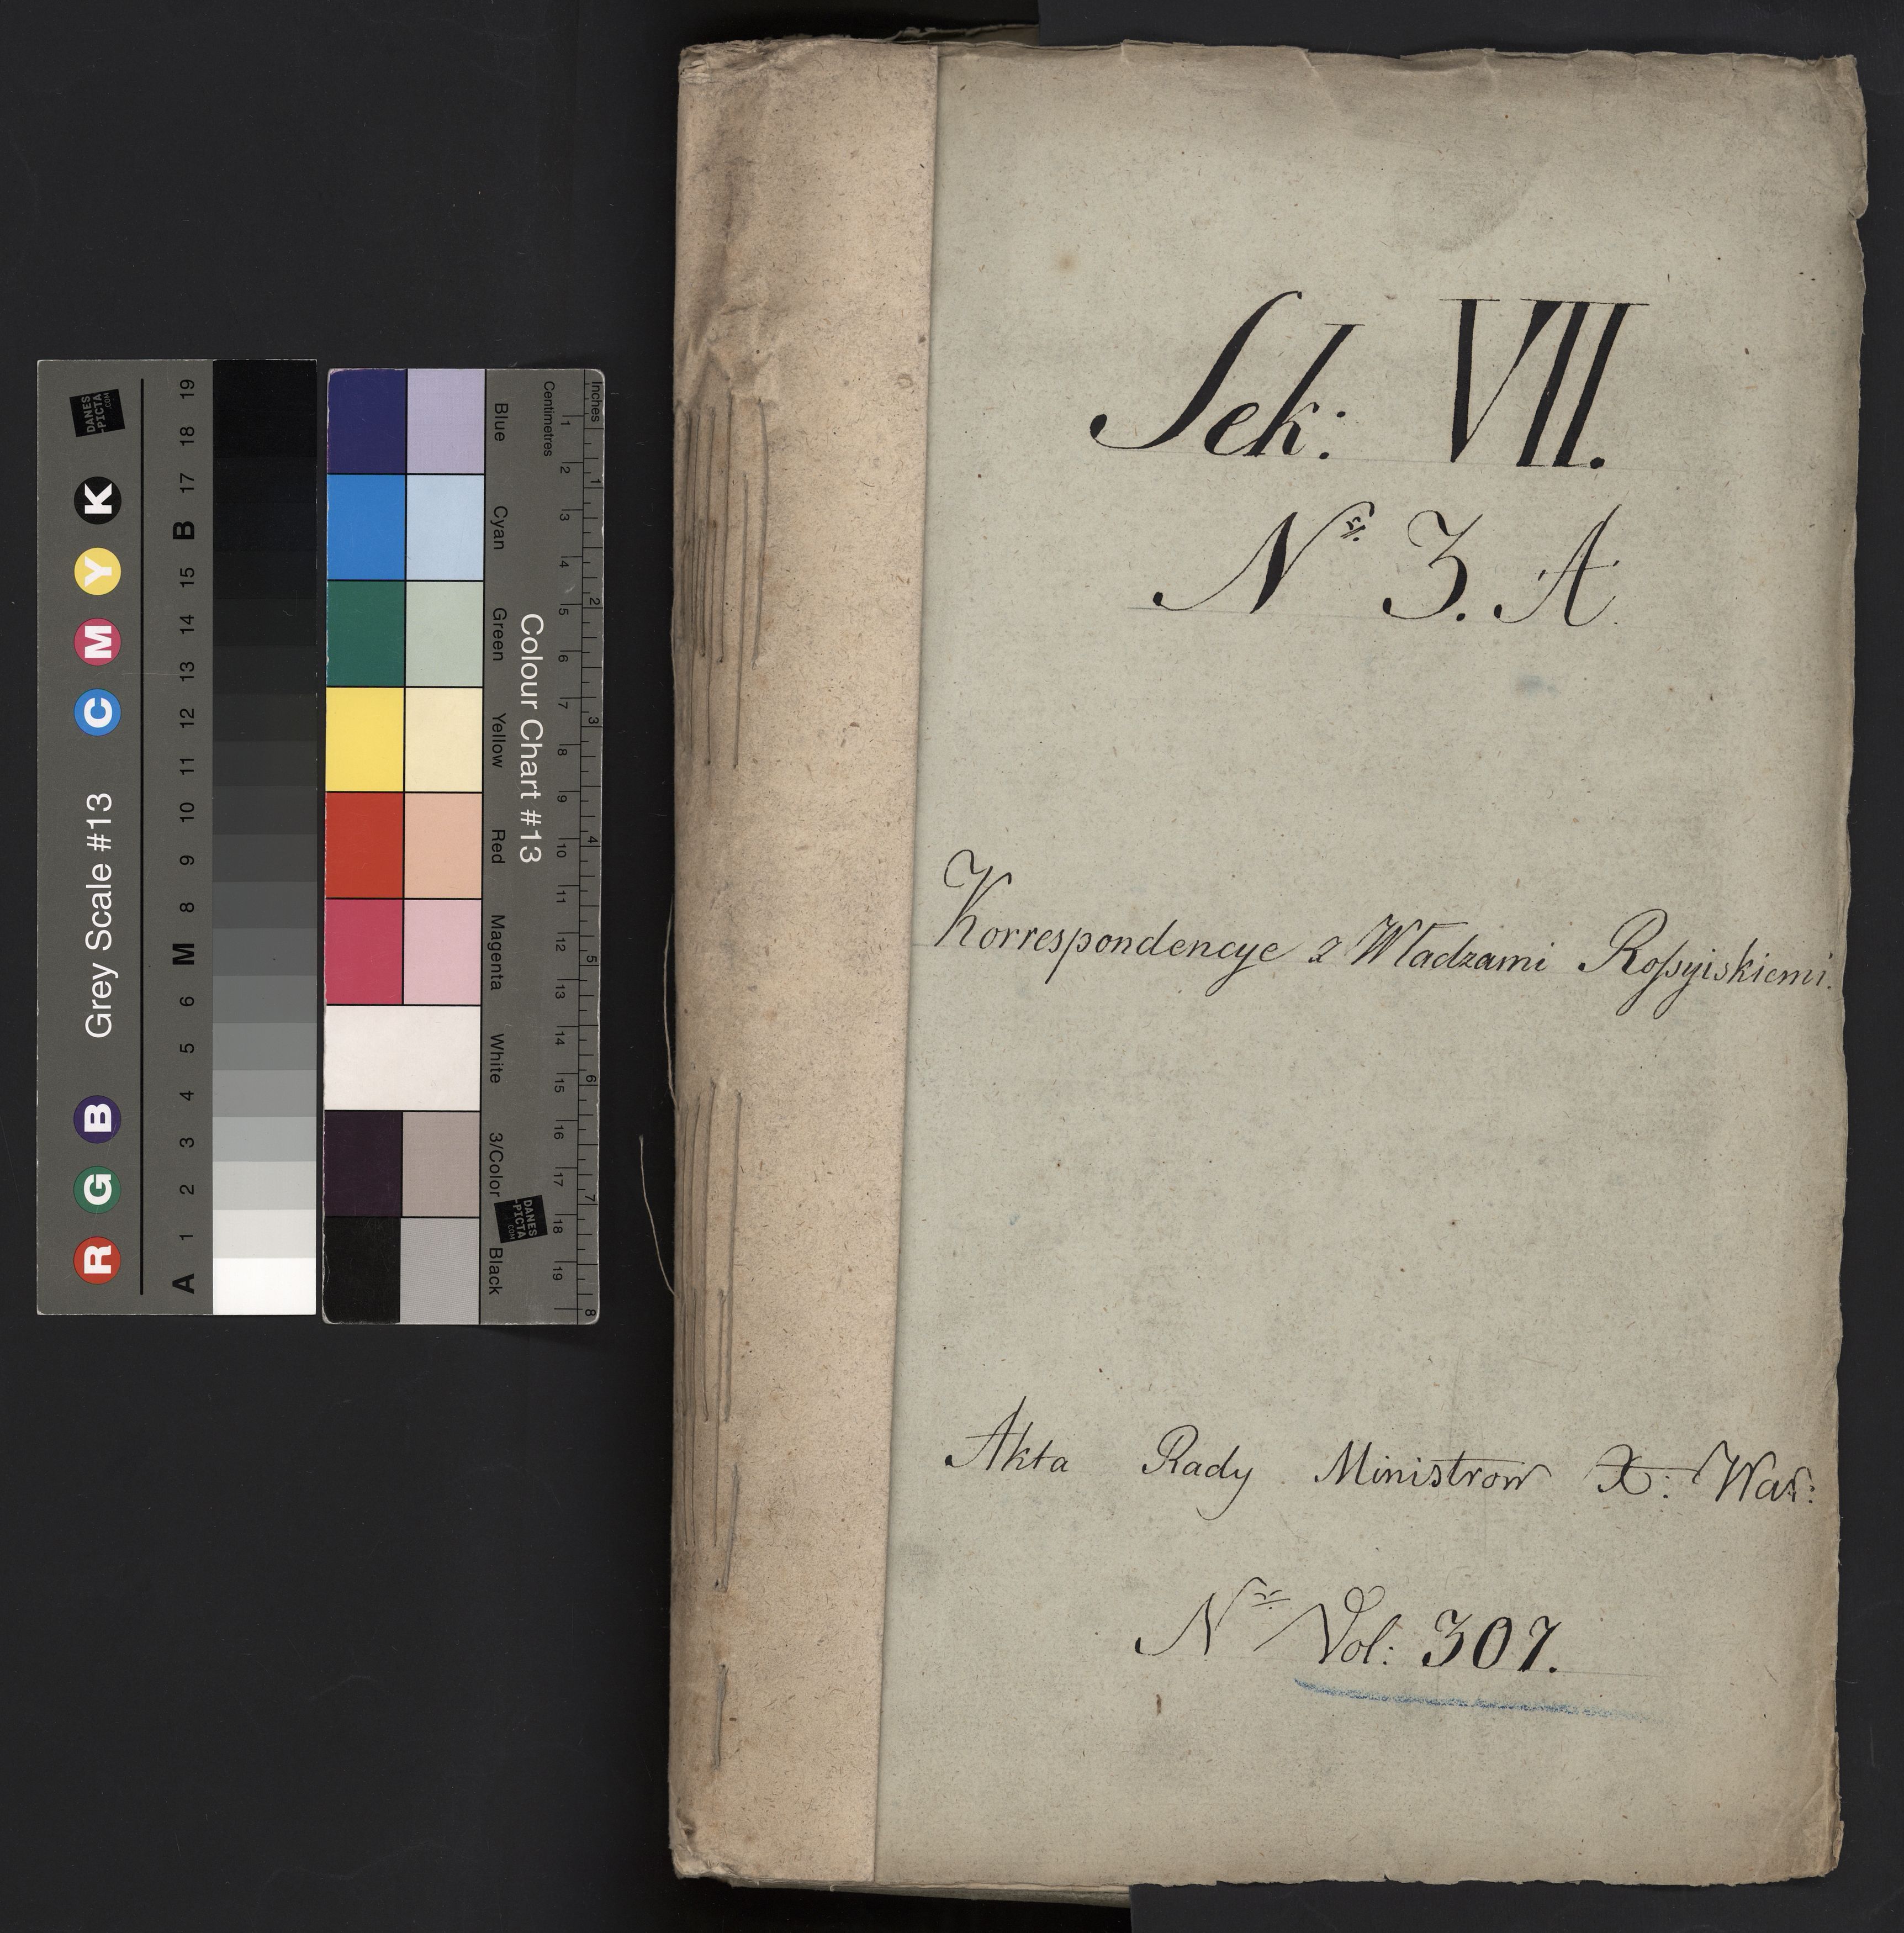 Sek: VII.
Nro 3. A.
Korrespondencye z Władzami Rossyiskiemi.
Akta Rady Ministrow X: War:
Nr Vol: 307.
Grey Scale #13
R G B C M Y K
A 1 2 3 4 5 6 M 8 9 10 11 12 13 14 15 B 17 18 19
DANES
-PICTA
.COM
Colour Chart #13
Blue Cyan Green Yellow Red Magenta White 3/Color Black
Centimetres
1 2 3 4 5 6 7 8 9 10 11 12 13 14 15 16 17 18 19
Inches
1 2 3 4 5 6 7 8
DANES
-PICTA
.COM